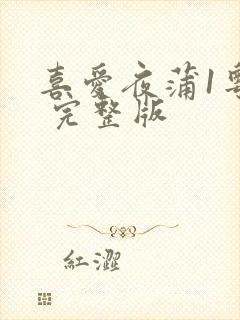 喜愛夜蒲1粵
完整版
紅澀